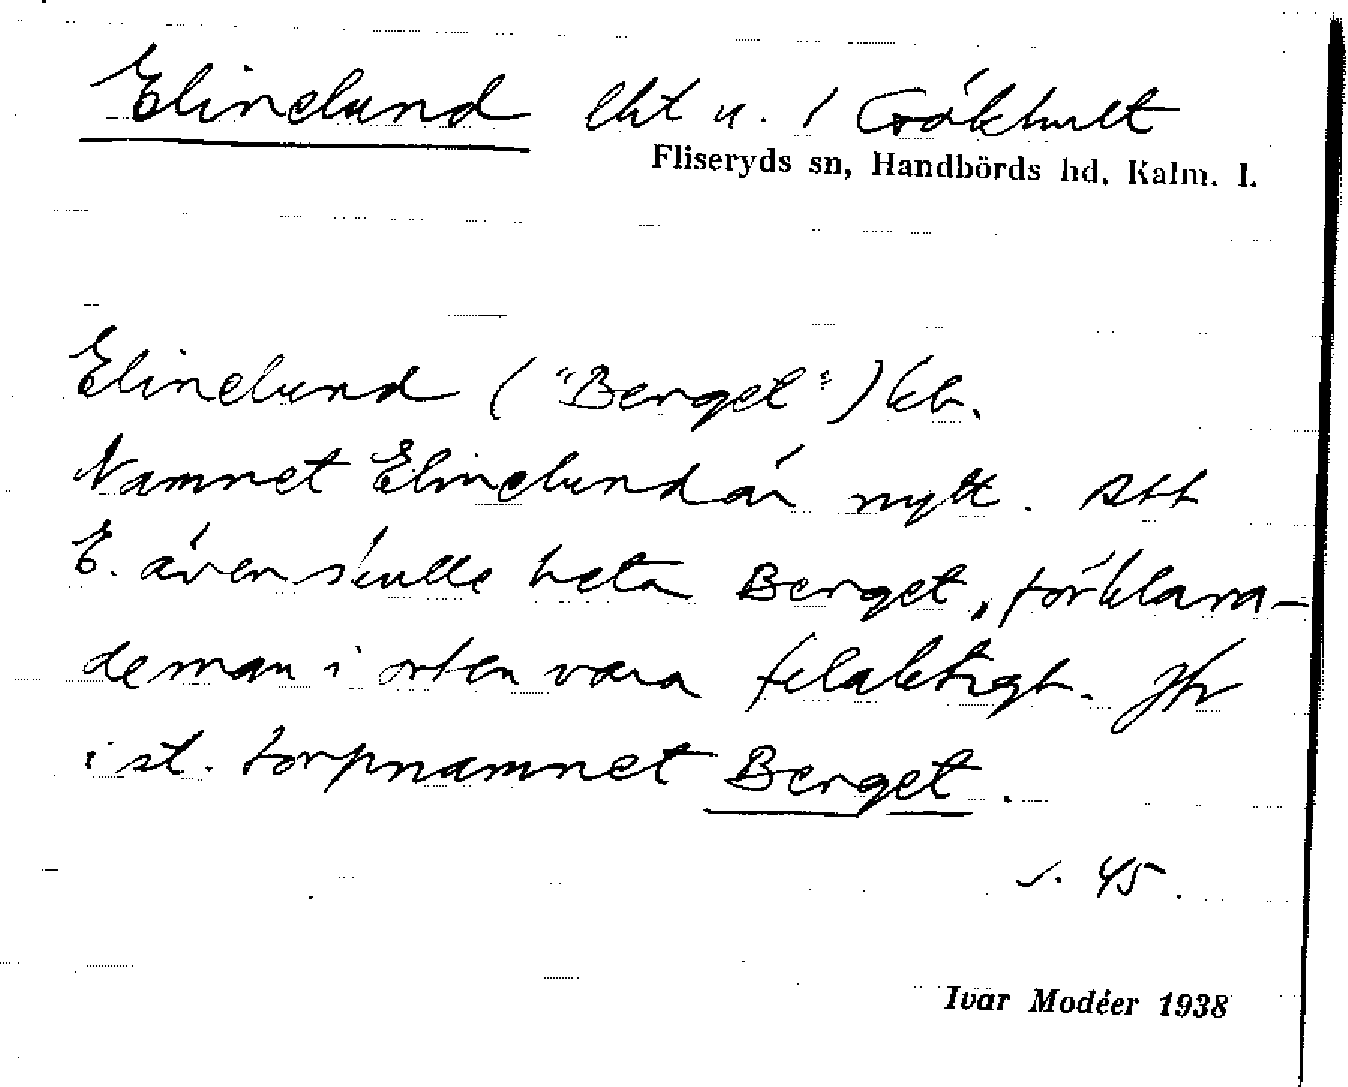 Elinelund lht u. 1 Gökhult
Fliseryds sn, Handbörds hd, Kalm. l.
Elinelund ("Berget") kb.
Namnet Elinelund är nytt. Att
E. även skulle heta Berget, förklara-
de man i orten vara felaktigt. Jfr
i st. torpnamnet Berget.
s. 45.
Ivar Modéer 1938